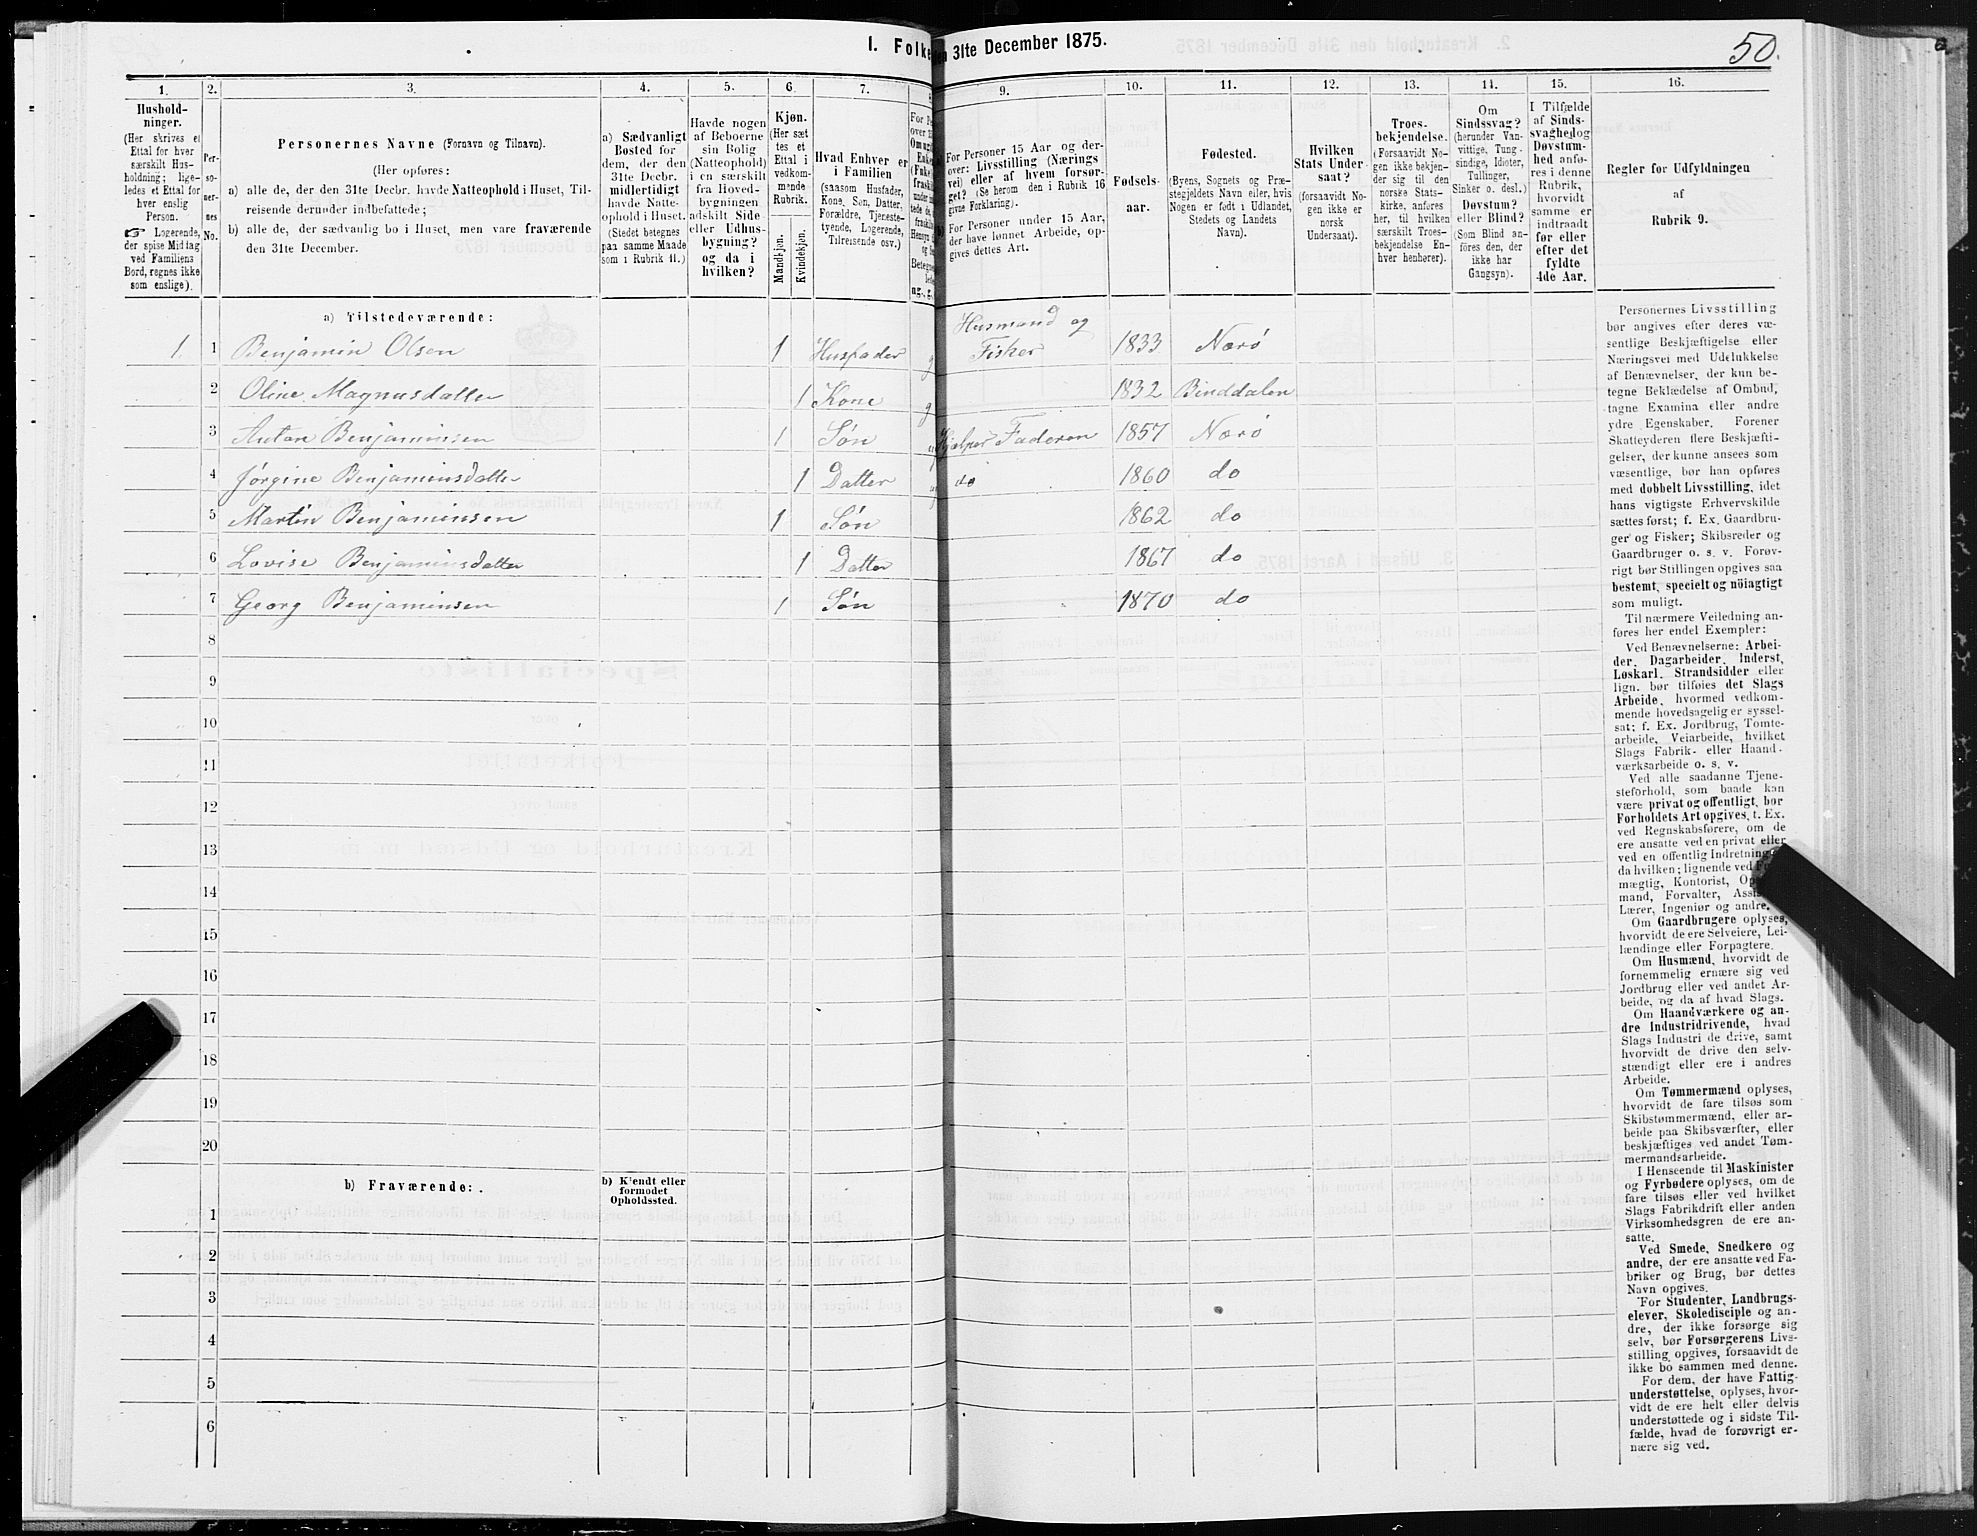 1. Folke
den 31te December 1875.
50.
1.
Hushold-
ninger.
(Her skrives et
Ettal for hver
særskilt Hus-
holdning; lige-
ledes et Ettal for
hver enslig
Person.
☞ Logerende,
der spise Middag
ved Familiens
Bord, regnes ikke
som enslige).
2.
Per-
so-
ner-
nes
No.
3.
Personernes Navne (Fornavn og Tilnavn).
(Her opføres:
a) alle de, der den 31te Decbr. havde Natteophold i Huset, Til-
reisende derunder indbefattede;
b) alle de, der sædvanlig bo i Huset, men vare fraværende
den 31te December.
4.
a) Sædvanligt
Bosted for
dem, der den
31te Decbr.
midlertidigt
havde Natte-
ophold i Huset.
(Stedet betegnes
paa samme Maade
som i Rubrik 11.)
5.
Havde nogen
af Beboerne
sin Bolig
(Natteophold)
i en særskilt
fra Hoved-
bygningen
adskilt Side-
eller Udhus-
bygning?
og da i
hvilken?
6.
Kjøn.
(Her sæt
tes et
Ettal i
vedkom-
mende
Rubrik.
Mandkjøn.
Kvindekjøn.
7.
Hvad Enhver er
i Familien
(saasom Husfader,
Kone, Søn, Datter,
Forældre, Tjeneste-
tyende, Logerende,
Tilreisende osv.)
9.
For Personer 15 Aar og der-
over: Livsstilling (Nærings
vei) eller af hvem forsør-
get? (Se herom den i Rubrik 16
givne Forklaring).
For Personer under 15 Aar,
der have lønnet Arbeide, op-
gives dettes Art.
10.
Fødsels-
aar.
11.
Fødested.
(Byens, Sognets og Præ-
stegjeldets Navn eller, hvis
Nogen er født i Udlandet,
Stedets og Landets
Navn).
12.
Hvilken
Stats Under
saat?
(forsaavidt No-
gen ikke er
norsk
Undersaat).
13.
Troes-
bekjendelse.
(Forsaavidt No-
gen ikke bekjen-
der sig til den
norske Stats-
kirke, anføres
her, til hvilken
særskilt Troes-
bekjendelse En-
hver henhører).
14.
Om
Sindssvag?
(herunder Van-
vittige, Tung-
sindige, Idioter,
Tullinger,
Sinker o. desl.)
Døvstum?
eller Blind?
(Som Blind an-
føres den, der
ikke har
Gangsyn).
15.
I Tilfælde
af Sinds-
svaghed og
Døvstum-
hed anfø-
res i denne
Rubrik,
hvorvidt
samme er
indtraadt
før eller
efter det
fyldte
4de Aar.
16.
Regler for Udfyldningen
af
Rubrik 9.
a) Tilstedeværende:
1. 1 Benjamin Olsen 1 Husfader g Husmand og Fisker 1833 Nærø
2 Oline Magnusdatter 1 Kone g 1832 Binddalen
3 Anton Benjaminsen 1 Søn ug Hjælper Faderen 1857 Nærø
4 Jørgine Benjaminsdatter 1 Datter ug do 1860 do
5 Martin Benjaminsen 1 Søn 1862 do
6 Lovise Benjaminsdatter 1 Datter 1867 do
7 Georg Benjaminsen 1 Søn 1870 do
8
9
10
11
12
13
14
15
16
17
18
19
20
b) Fraværende:
b) Kjendt eller
formodet
Opholdssted.
1
2
3
4
5
6
Personernes Livsstilling
bør angives efter deres væ-
sentlige Beskjæftigelse eller
Næringsvei med Udelukkelse
af Benævnelser, der kun be-
tegne Beklædelse af Ombud,
tagne Examina eller andre
ydre Egenskaber. Forener
Skatteyderen flere Beskjæfti-
gelser, der kunne ansees som
væsentlige, bør han opføres
med dobbelt Livsstilling, idet
hans vigtigste Erhvervskilde
sættes først; f. Ex. Gaardbru-
ger og Fisker; Skibsreder og
Gaardbruger o. s. v. Forøv-
rigt bør Stillingen opgives saa
bestemt, specielt og nöiagtigt
som muligt.
Til nærmere Veiledning an-
føres her endel Exempler:
Ved Benævnelserne: Arbei-
der, Dagarbeider, Inderst,
Løskarl, Strandsidder eller
lign. bør tilføies det Slags
Arbeide, hvormed vedkom-
mende hovedsagelig er syssel-
sat; f. Ex. Jordbrug, Tomte-
arbeide, Veiarbeide, hvilket
Slags Fabrik- eller Haand-
værksarbeide o. s. v.
Ved alle saadanne Tjene-
steforhold, som baade kan
være privat og offentligt, bør
Forholdets Art opgives, t. Ex.
ved Regnskabsførere, om de
ere ansatte ved en privat eller
ved en offentlig Indretning
da hvilken; lignende ved
mægtig, Kontorist,
mand, Forvalter,
Lærer, Ingeniør og andre.
Om Gaardbrugere oplyses,
hvorvidt de ere Selveiere, Lei-
lændinge eller Forpagtere.
Om Husmænd, hvorvidt de
fornemmelig ernære sig ved
Jordbrug eller ved andet Ar-
beide, og da af hvad Slags.
Om Haandværkere og an-
dre Industridrivende, hvad
Slags Industri de drive, samt
hvorvidt de drive den selv-
stændigt eller ere i andres
Arbeide.
Om Tømmermænd oplyses,
hvorvidt de fare tilsøs som
Skibstømmermænd, eller ar-
beide paa Skibsværfter, eller
beskjæftiges ved andet Tøm-
mermandsarbeide.
I Henseende til Maskinister
og Fyrbødere oplyses, om de
fare tilsøs eller ved hvilket
Slags Fabrikdrift eller anden
Virksomhedsgren de ere an-
satte.
Ved Smede, Snedkere og
andre, der ere ansatte ved Fa-
briker og Brug, bør dettes
Navn opgives.
For Studenter, Landbrugs-
elever, Skoledisciple og an-
dre, der ikke forsørge sig
selv, bør Forsørgerens Livs-
stilling opgives, forsaavidt de
ikke bo sammen med denne.
For dem, der have Fattig-
understøttelse, oplyses, hvor-
vidt de ere helt eller delvis
understøttede og i sidste Til-
fælde, hvad de forøvrigt er-
nære sig ved.